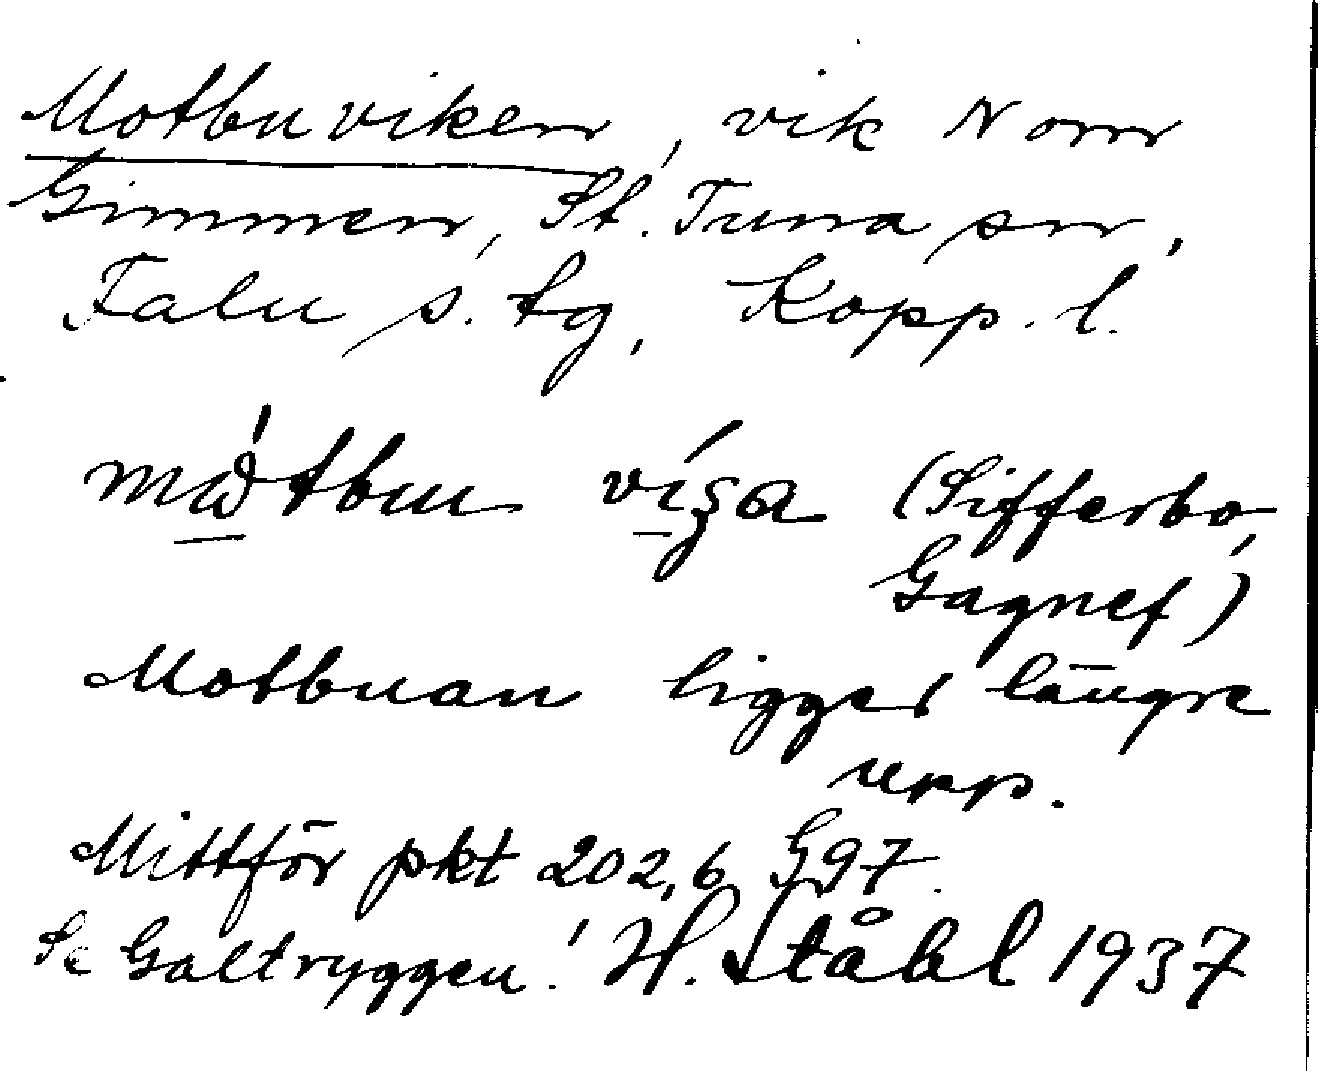 Motbuviken, vik N om
Gimmen, St. Tuna sn,
Falu s. tg, Kopp. l.
viga (Sifferbo,
Gagnef)
Motbuan ligger längre
upp.
Mittför pkt 202,6 G97.
Se Galtryggen! H. Ståhl 1937